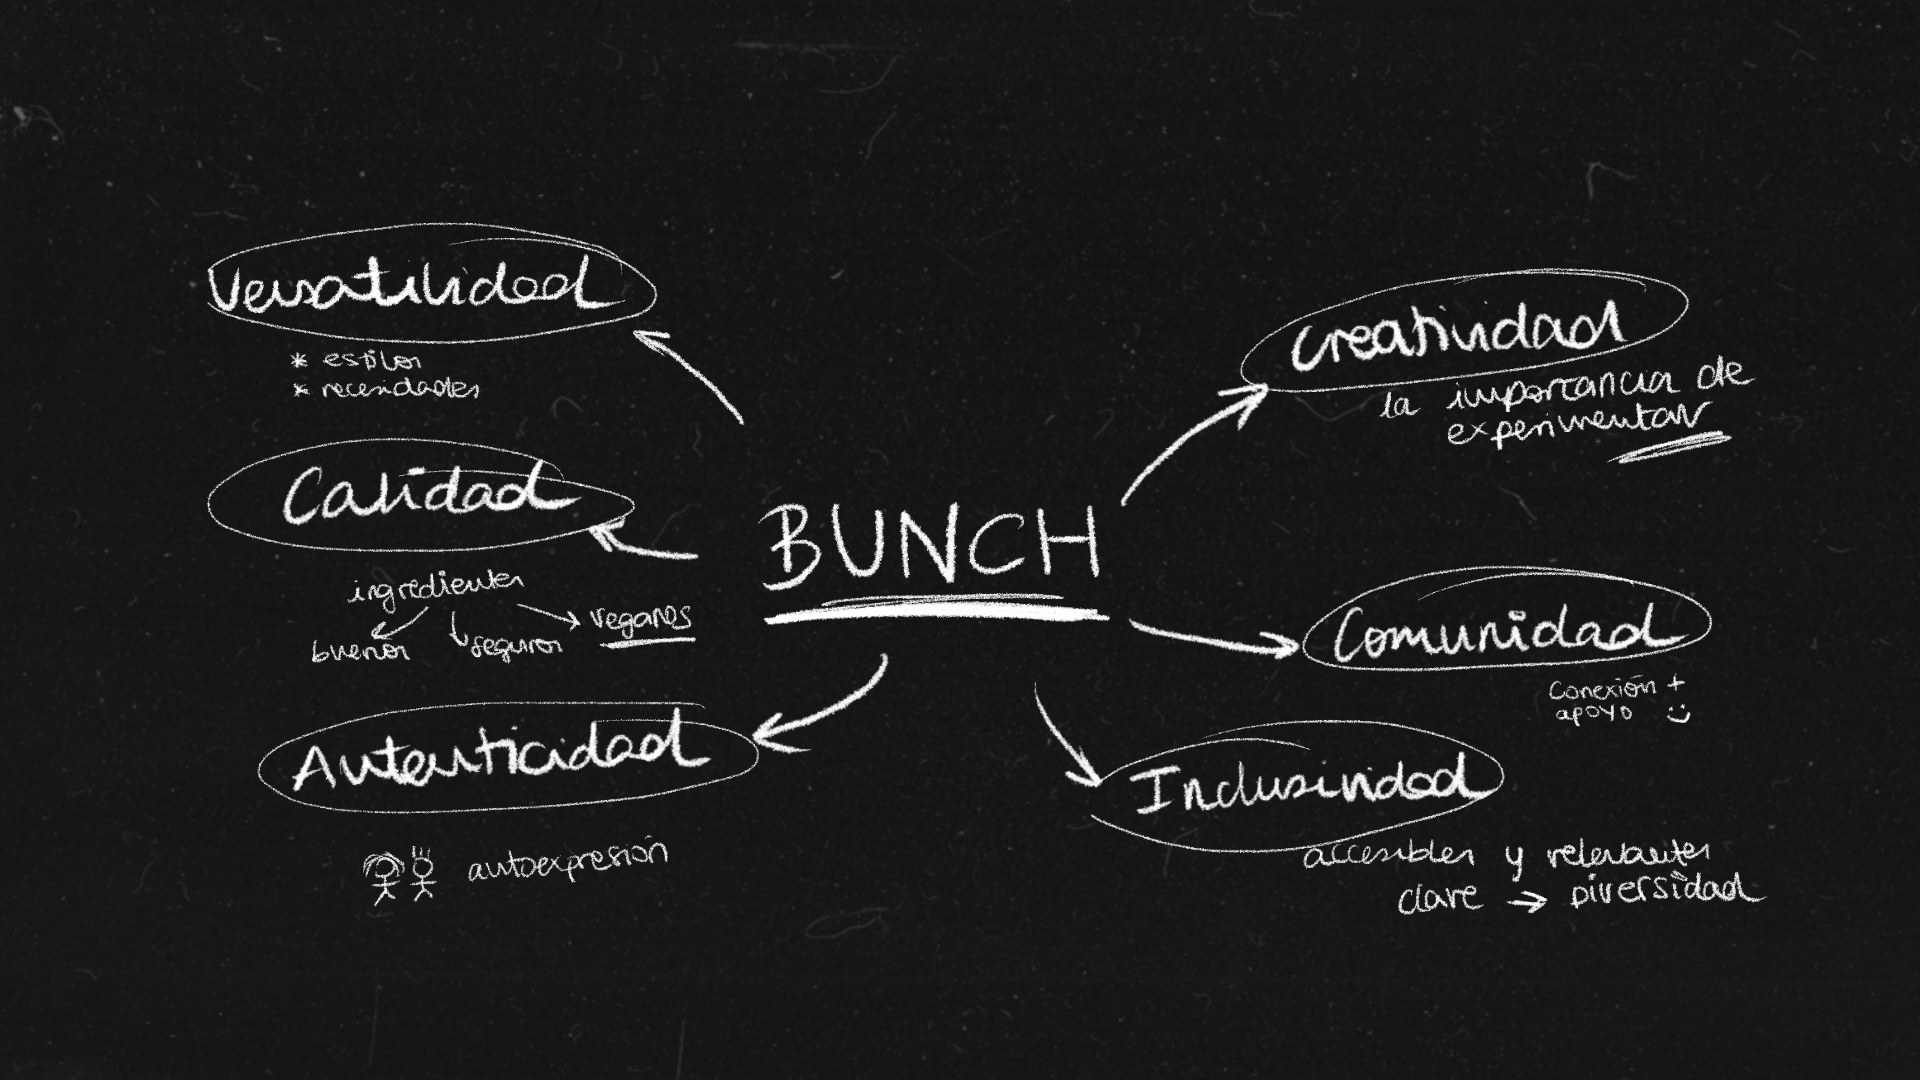 Versatilidad
* estilos
* necesidades
Calidad
ingredientes
buenos
seguros
veganos
Autenticidad
autoexpresión
BUNCH
Creatividad
la importancia de
experimentar
Comunidad
Conexión +
apoyo
Inclusividad
accesibles y relevantes
clave → Diversidad